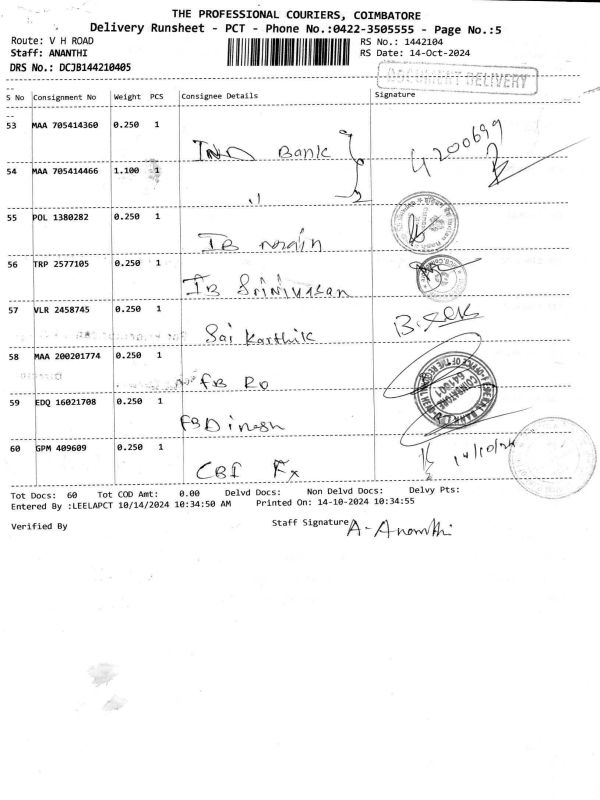 THE PROFESSIONAL COURIERS, COIMBATORE
Delivery Runsheet - PCT - Phone No.:0422-3505555 - Page No.:5
Route: V H ROAD RS No.: 1442104
Staff: ANANTHI RS Date: 14-Oct-2024
DRS No.: DCJB144210405
DOCUMENT DELIVERY
S No Consignment No Weight PCS Consignee Details Signature
53 MAA 705414360 0.250 1 IND Bank 4200699
54 MAA 705414466 1.100 1 ,,
55 POL 1380282 0.250 1 IB main
56 TRP 2577105 0.250 1 IB Srinivasan
57 VLR 2458745 0.250 1 Sai Karthik
58 MAA 200201774 0.250 1 FB RO
59 EDQ 16021708 0.250 1 FB Dinesh
60 GPM 409609 0.250 1 CBI Fx 14/10/24
Tot Docs: 60 Tot COD Amt: 0.00 Delvd Docs: Non Delvd Docs: Delvy Pts:
Entered By :LEELAPCT 10/14/2024 10:34:50 AM Printed On: 14-10-2024 10:34:55
Verified By Staff Signature A-Ananthi